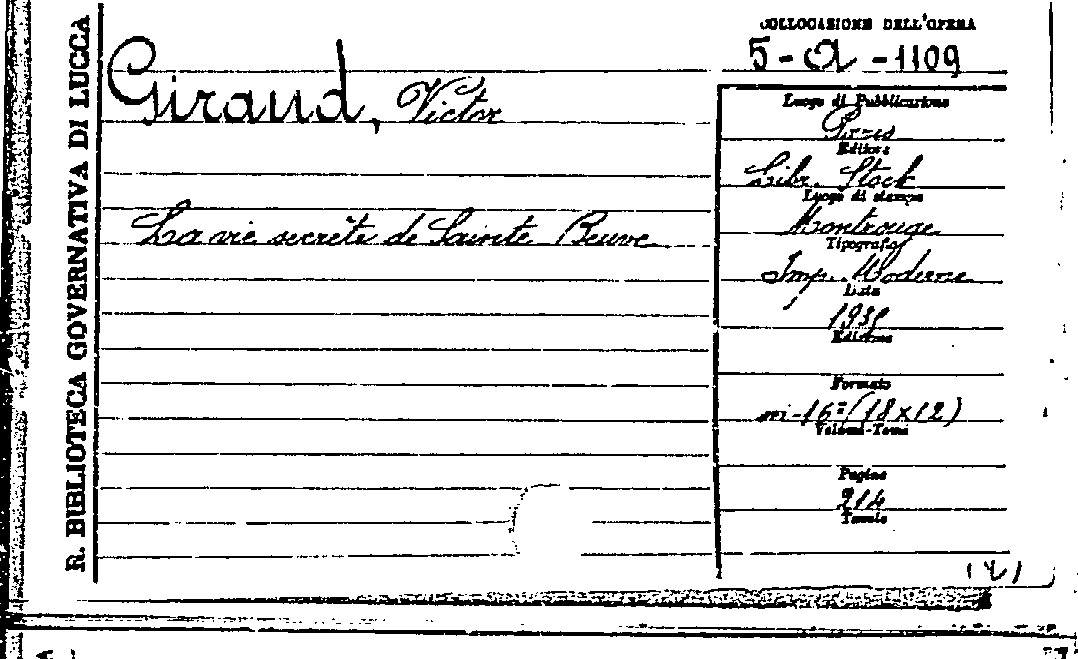 R. BIBLIOTECA GOVERNATIVA DI LUCCA
COLLOCAZIONE DELL'OPERA
5-a-1109
Giraud, Victor
La vie secrète de Sainte Beuve
Luogo di Pubblicazione
Paris
Editore
Libr. Stock
Luogo di stampa
Montrouge
Tipografo
Imp. Moderne
Data
1935
Edizione
Formato
in-16° (18x12)
Volumi-Tomi
Pagine
214
Tavole